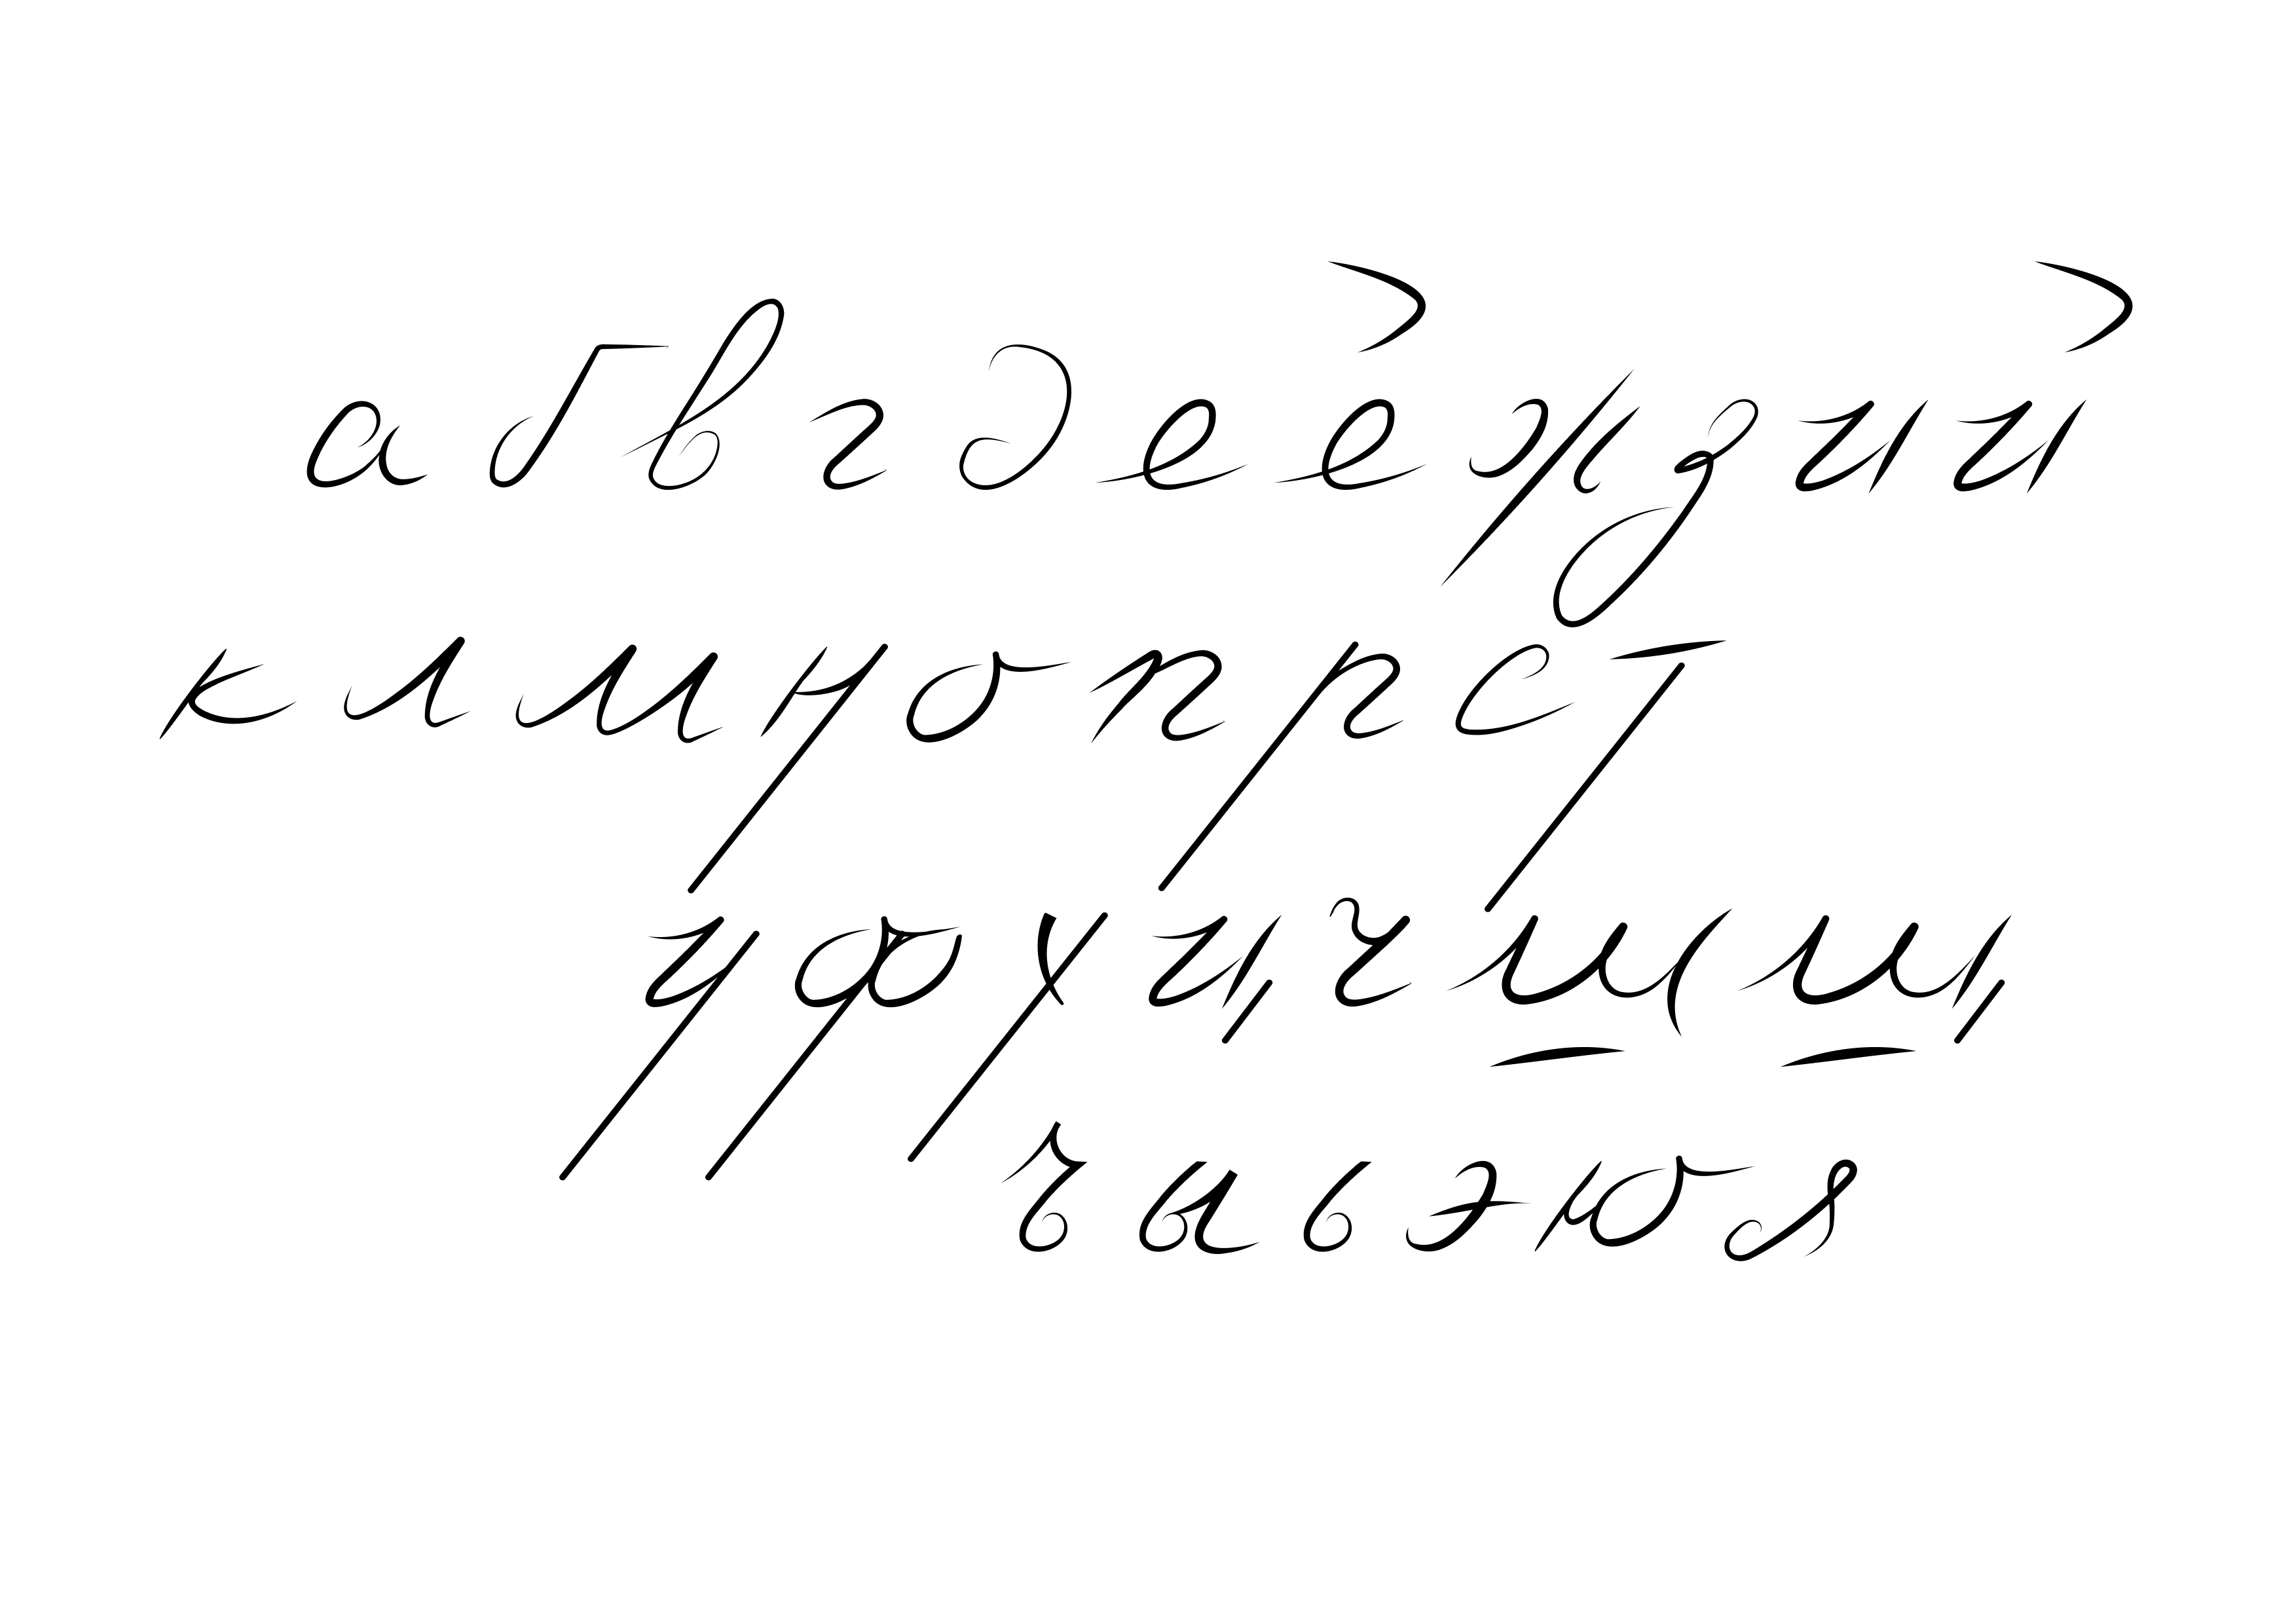 а б в г д е ё ж з и й
к л м н о п р с т
у ф х ц ч ш щ
ъ ы ь э ю я